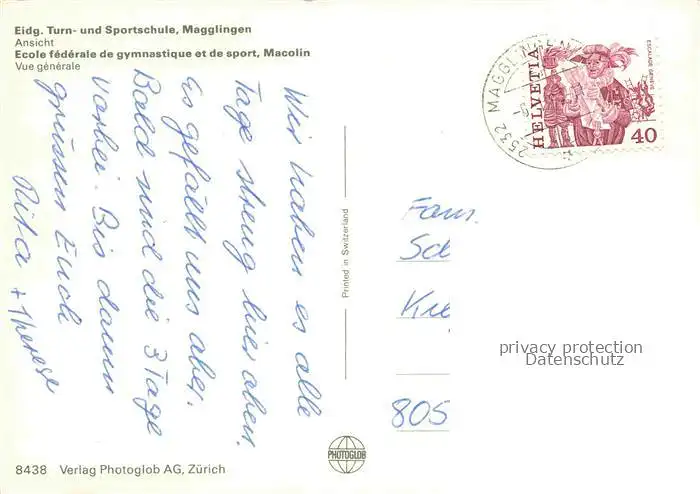 Eidg. Turn- und Sportschule, Magglingen
Ansicht
Ecole fédérale de gymnastique et de sport, Macolin
Vue générale
Wir haben es alle
Tage streng hier oben.
Es gefällt uns aber.
Bald sind die 3 Tage
vorbei. Bis dann
grüssen Euch
Rita + Therese
Printed in Switzerland
2532 MAGGLINGEN
HELVETIA
ESCALADE GENÈVE
40
Fam.
805
privacy protection
Datenschutz
PHOTOGLOB
8438 Verlag Photoglob AG, Zürich